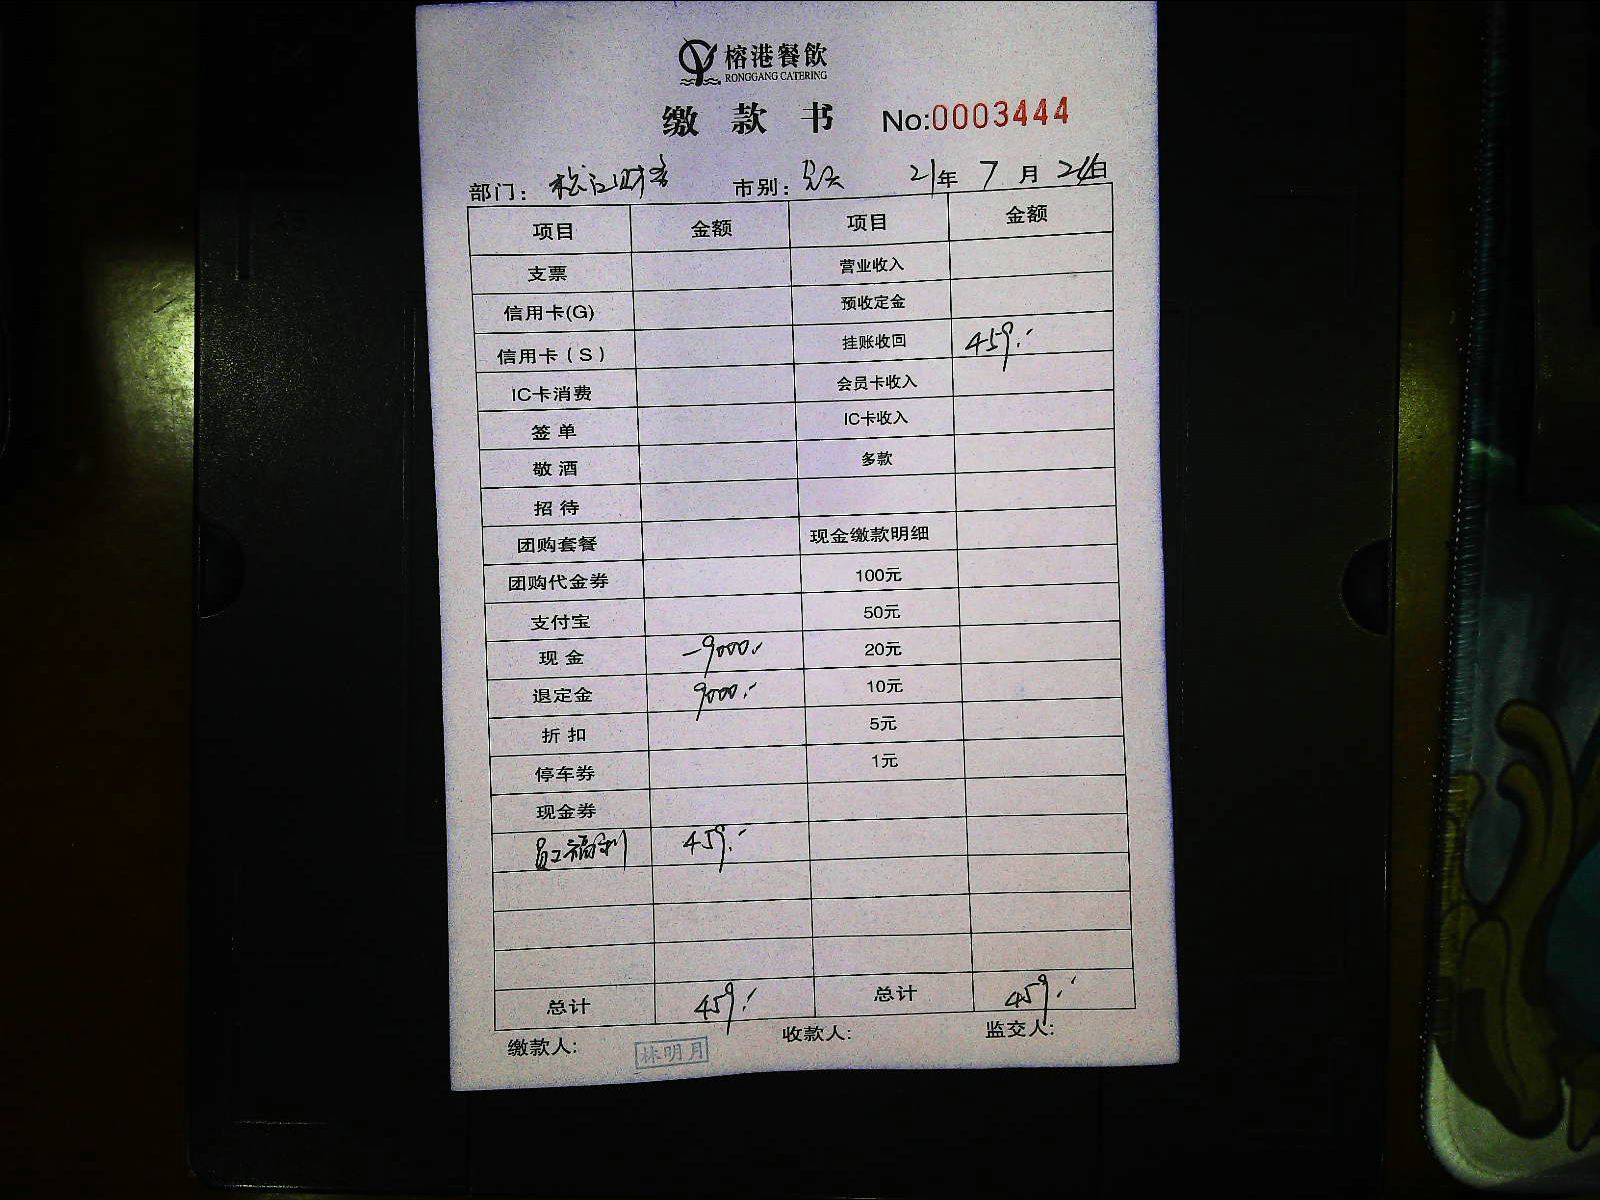 榕港餐飲
RONGGANG CATERING
缴款书 No:0003444
部门: 松江财务 市别: 21年7月24日
项目 金额 项目 金额
支票 营业收入
信用卡(G) 预收定金
信用卡(S) 挂账收回 459.-
IC卡消费 会员卡收入
签单 IC卡收入
敬酒 多款
招待
团购套餐 现金缴款明细
团购代金券 100元
支付宝 50元
现金 -9000.- 20元
退定金 9000.- 10元
折扣 5元
停车券 1元
现金券
员工福利 459.-
总计 459.- 总计 459.-
缴款人: 林明月 收款人: 监交人: